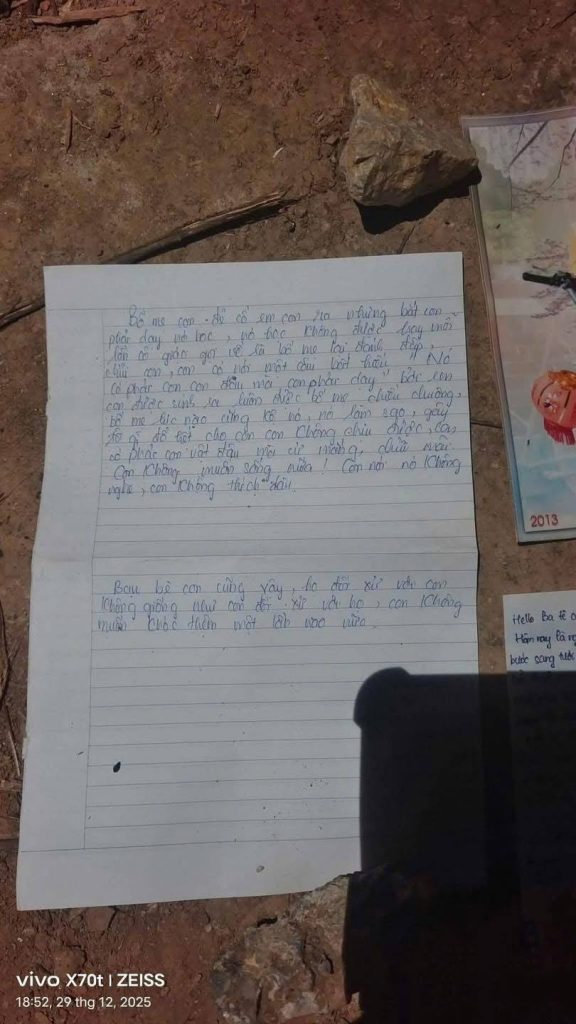 Bố mẹ con đẻ cô em con ra nhưng bắt con
phải dạy nó học, nó học không được hay mỗi
lần cô giáo gọi về là bố mẹ lại đánh đập,
chửi con, con có nói một câu bất hiếu "Nó
có phải con con đâu mà con phải dạy" Bởi em
con được sinh ra luôn được bố mẹ chiều chuộng,
bố mẹ lúc nào cũng kể nó, nó làm sao, gây
tội gì đổ tội cho con con không chịu được, con
có phải con vật đâu mà cứ mắng, chửi mãi.
Con không muốn sống nữa! Con nói nó không
nghe, con không thích đâu
Bạn bè con cũng vậy, họ đối xử với con
không giống như con đối xử với họ, con không
muốn khóc thêm một lần nào nữa.
2013
Hello Ba
Hôm nay là
bước sang
vivo X70t | ZEISS
18:52, 29 thg 12, 2025